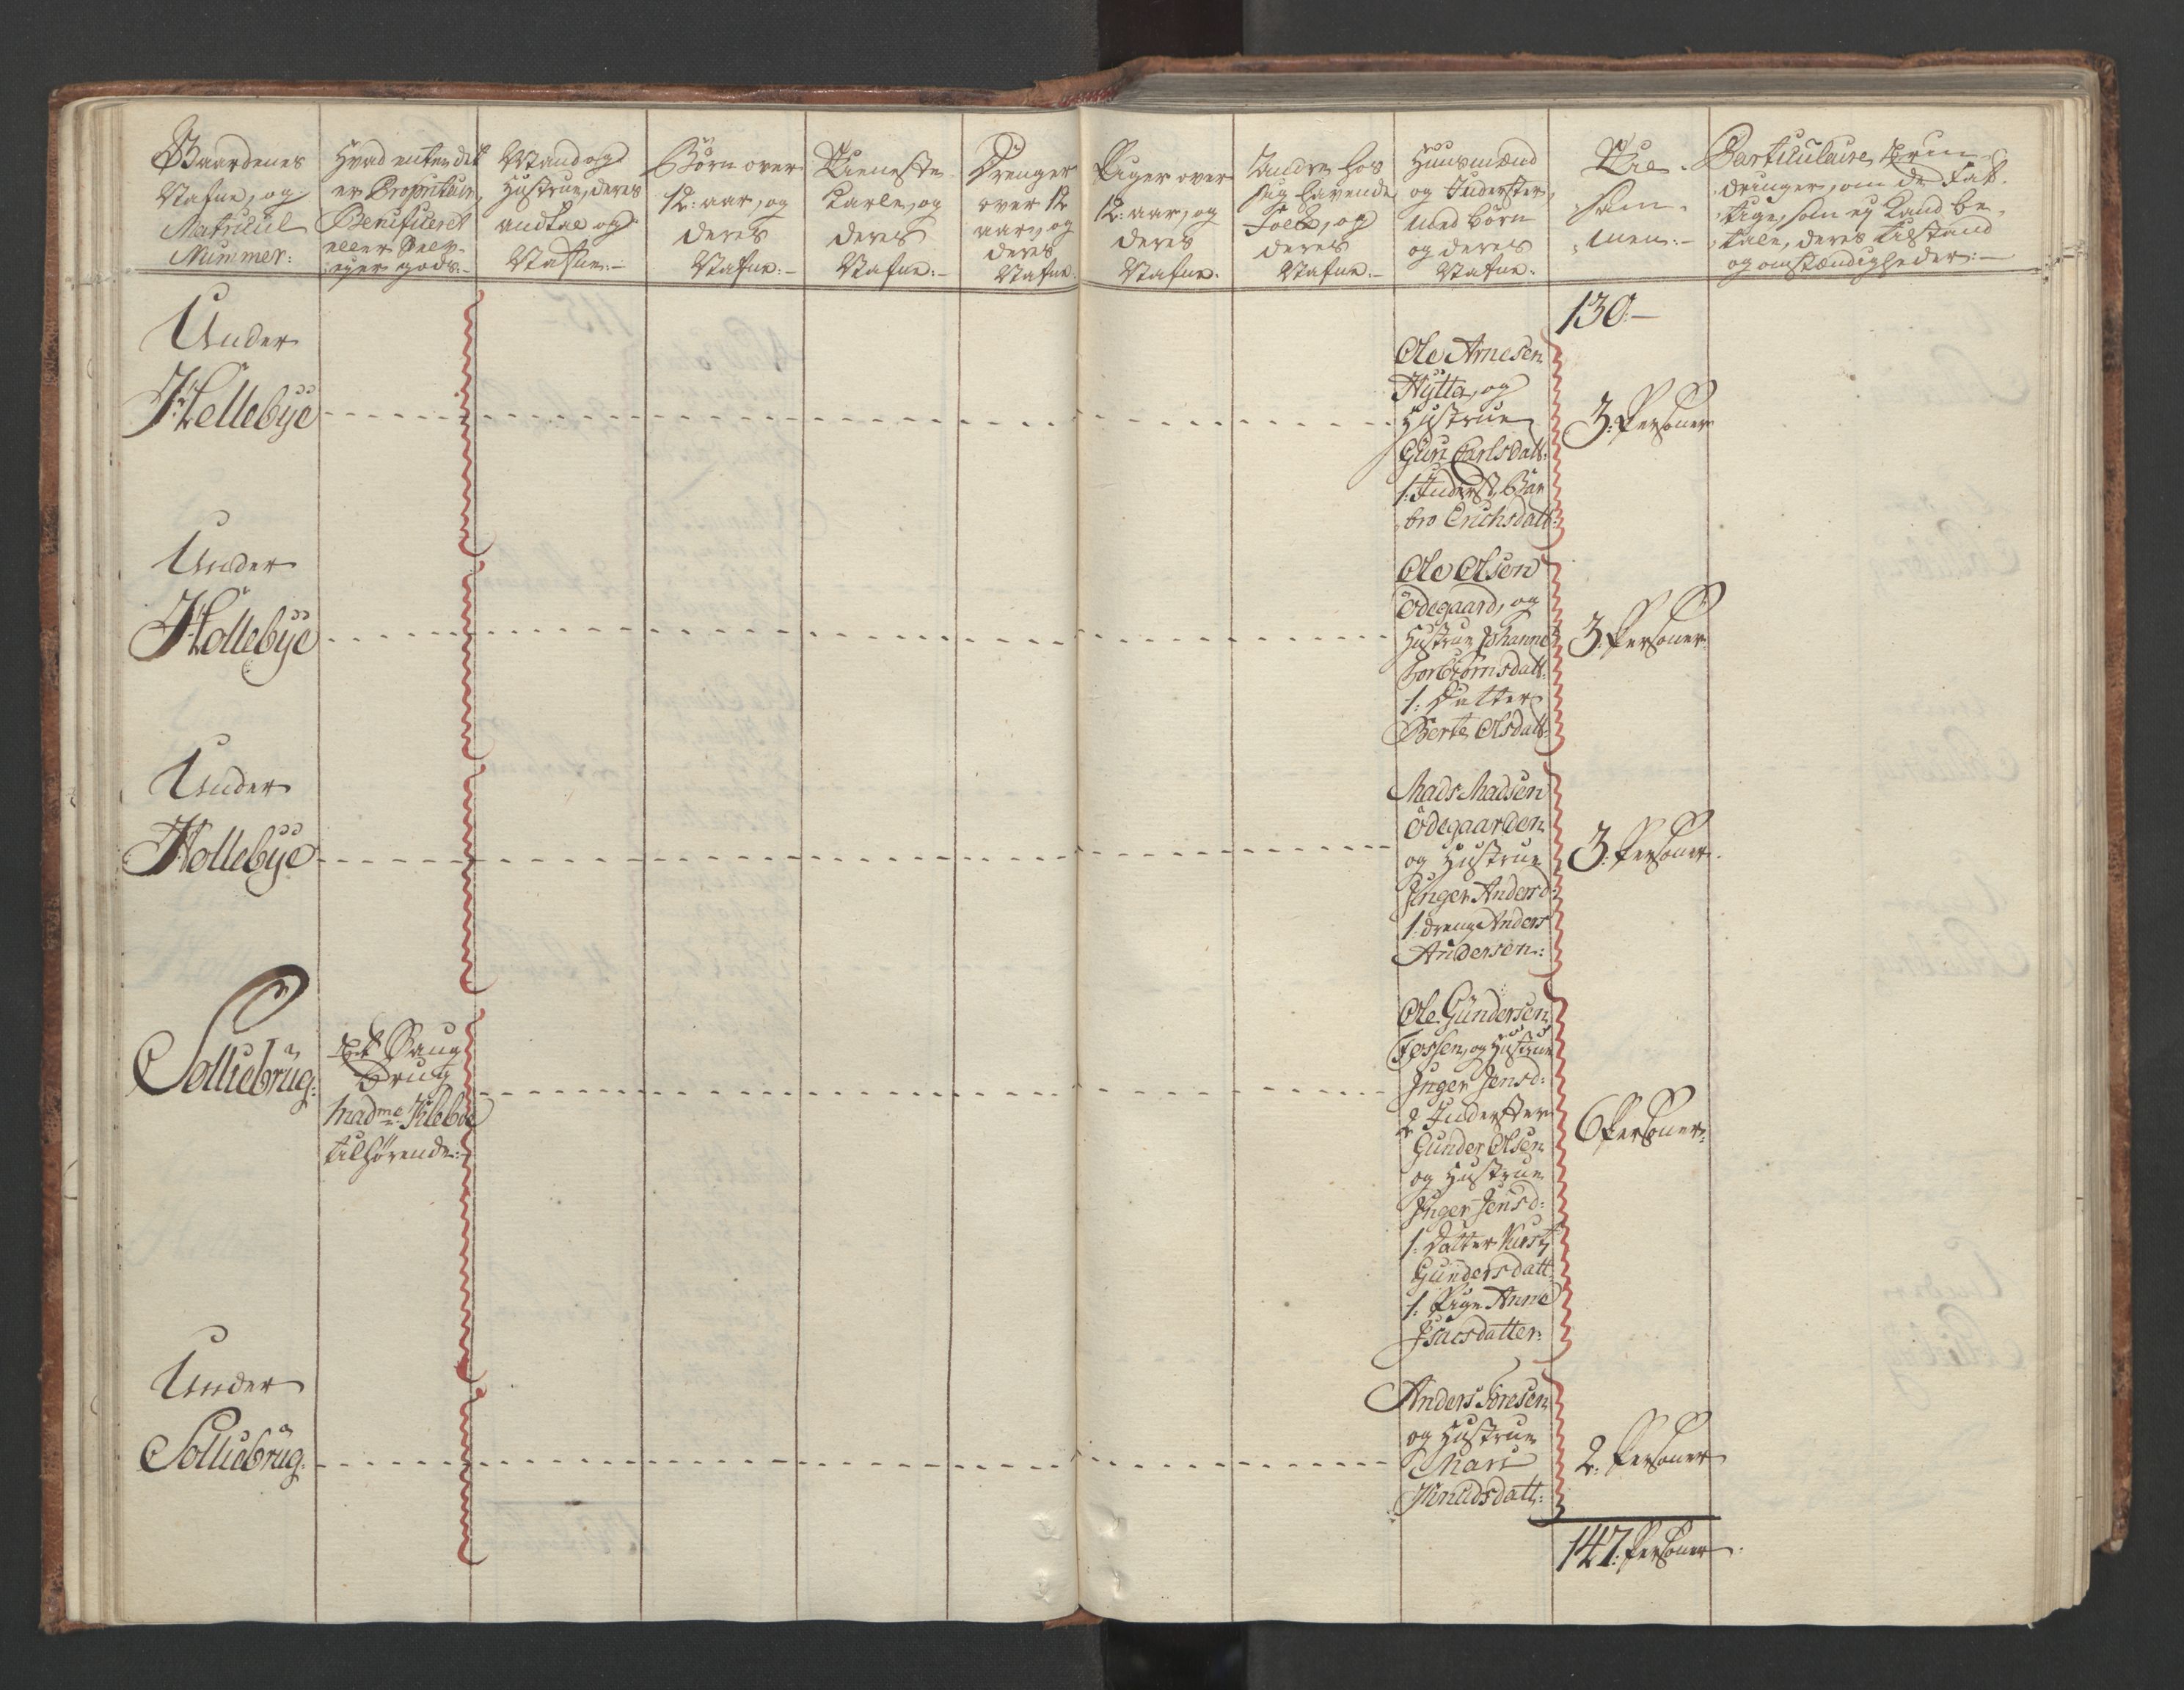 Gaardenes
Nafne, og
Matricul
Nummer:
Hvad enten det
er Propritair,
Benificeret
eller Selv-
eyer gods:-
Mand og
Hustrue, deres
andtal og
Nafne:-
Børn over
12: aar, og
deres
Nafne:-
Tieneste
Karle, og
deres
Nafne:-
Drenger
over 12
aar, og
deres
Nafne:
Piger over
12: aar, og
deres
Nafne:
Andre hos
sig havende
Folk, og
deres
Nafne:-
Huusmænd
og Inderster,
med børn
og deres
Nafne:
Til-
sam-
men:-
Particulaire Erin-
dringer, om de Fat-
tige, som ey kand be-
tale, deres tilstand
og omstændigheder:-
130:-
Under
Hellebye
Ole Arnesen
Hytta, og
Hustrue
Guri Carlsdatt:
1: Inderst, Bar
bro Erichsdatt:
3: Personer
Under
Hollebye
Ole Olsen
Ödegaard, og
Hustrue Johanne
Torbiörnsdatt:
1: Datter
Berte Olsdatt:
3: Personer
Under
Hollebye
Mads Madsen
Ödegaarden
og Hustrue
Inger Andersd:
1: dreng Anders
Andersen:
3: Personer
Solliebrug:
Et Saug
Brug
Mad:me Kleboe
tilhørende:-
Ole Gundersen
Fossen, og Hustrue
Inger Jensd:
2 Inderster
Gunder Olsen
og Hustrue
Inger Jensd:
1: Datter Kirst;
Gundersdatt:
1: Pige Anne
Isacsdatter:
6 Personer:
Under
Solliebrug:
Anders Toresen
og Hustrue
Mari
Knudsdatt:
2: Personer
147: Personer